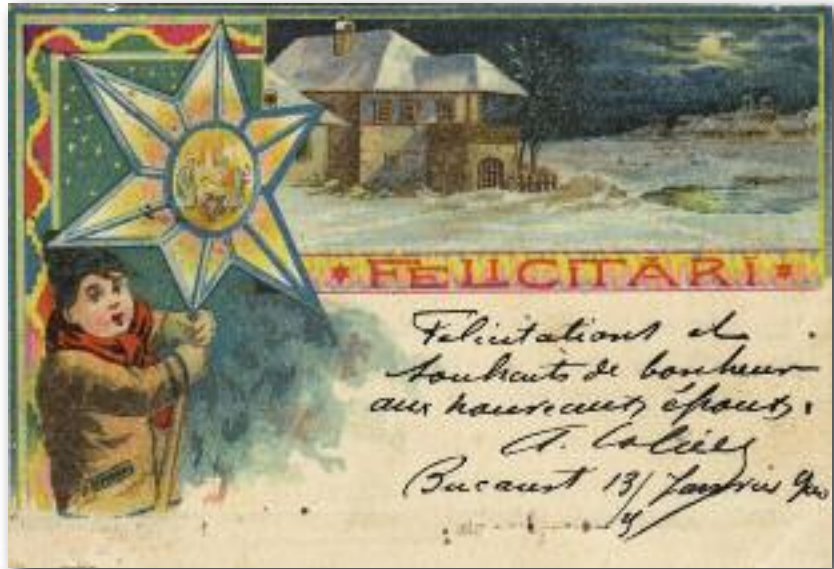 * FELICITARI *
Félicitations et
souhaits de bonheur
aux nouveaux époux.
Bucarest 13/ Janvier 900